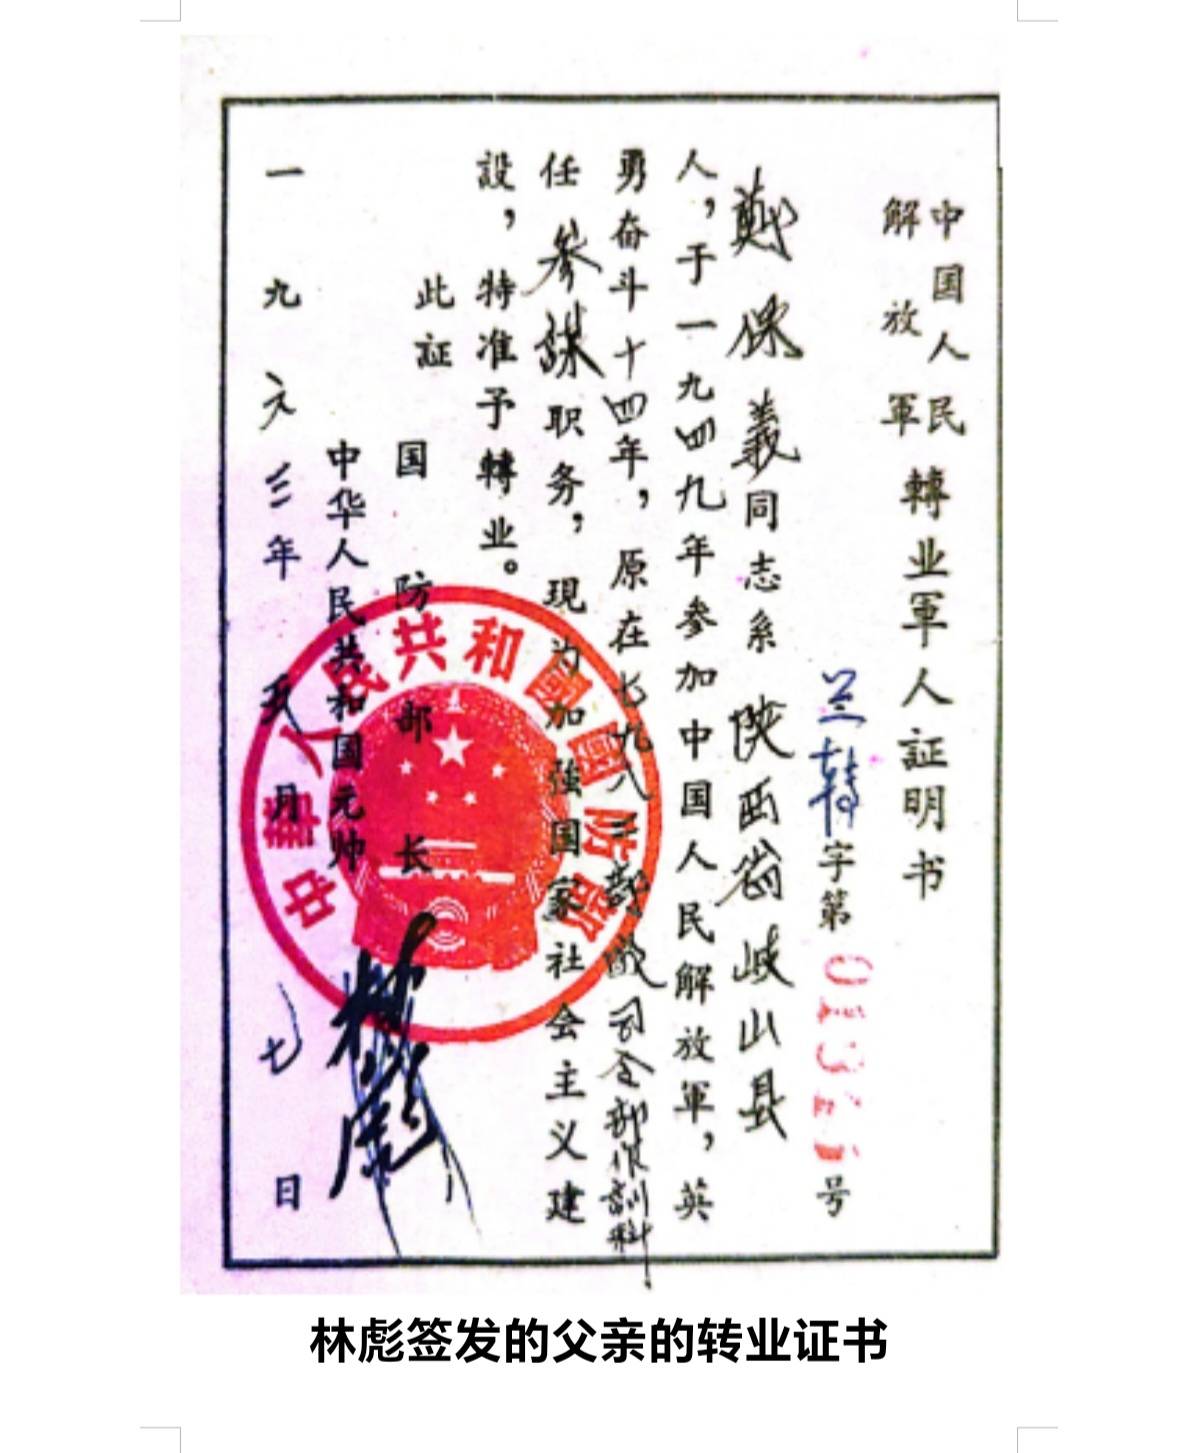 中国人民
解放軍
轉业軍人証明书
兰转字第号
鄭保義同志系陕西省岐山县
人，于一九四九年参加中国人民解放軍，英
勇奋斗十四年，原在七九八二部队司令部作訓科
任参謀职务，現为加強国家社会主义建
設，特准予轉业。
此証
国防部长
中华人民共和国元帅
林彪
一九六三年五月七日
中華人民共和國國防部
林彪签发的父亲的转业证书